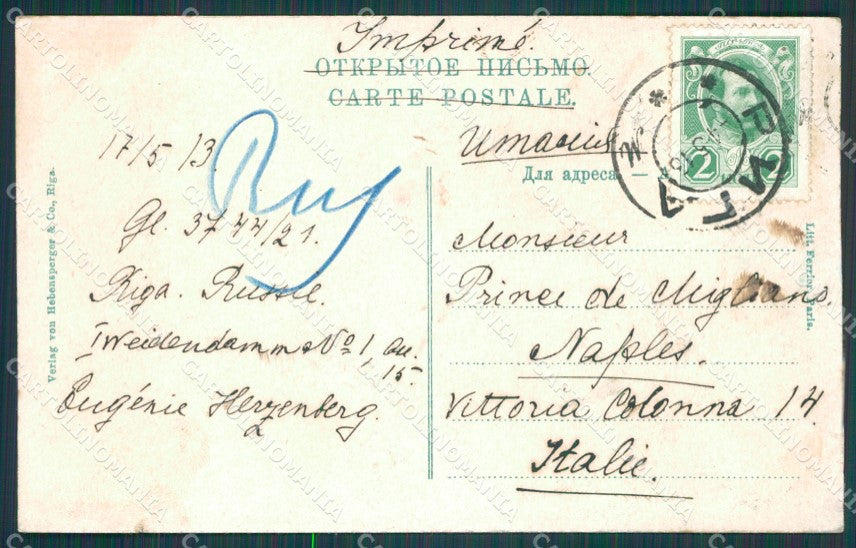 Imprimé.
ОТКРЫТОЕ ПИСЬМО.
CARTE POSTALE.
Италия
Для адреса. —
РИГА
2 2
17/5 13.
Gl. 3744/21.
Riga. Russie.
I Weidendamm No 1, qu.
15.
Eugénie Herzenberg.
Rus
Monsieur
Prince de Migliano.
Naples.
Vittoria Colonna 14.
Italie.
Verlag von Hebensperger & Co., Riga.
Litt. Ferrier, Paris.
CARTOLINOMANIA